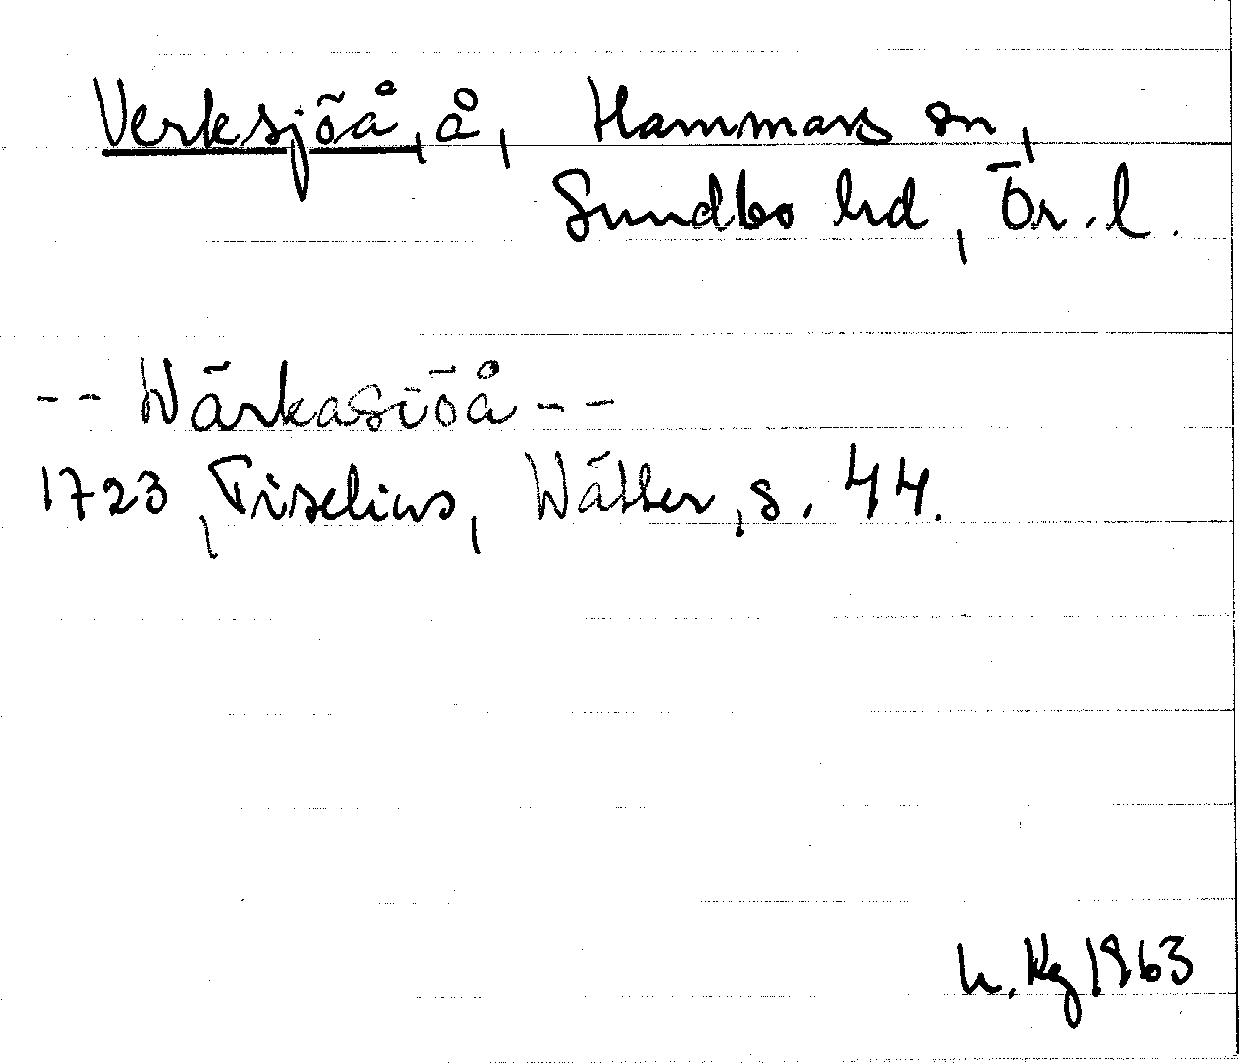 Verksjöå, å, Hammars sn,
Sundbo hd, Ör. l.
-- Wärkasiöå --
1723, Tiselius, Wätter, s. 44.
h. Kg 1963